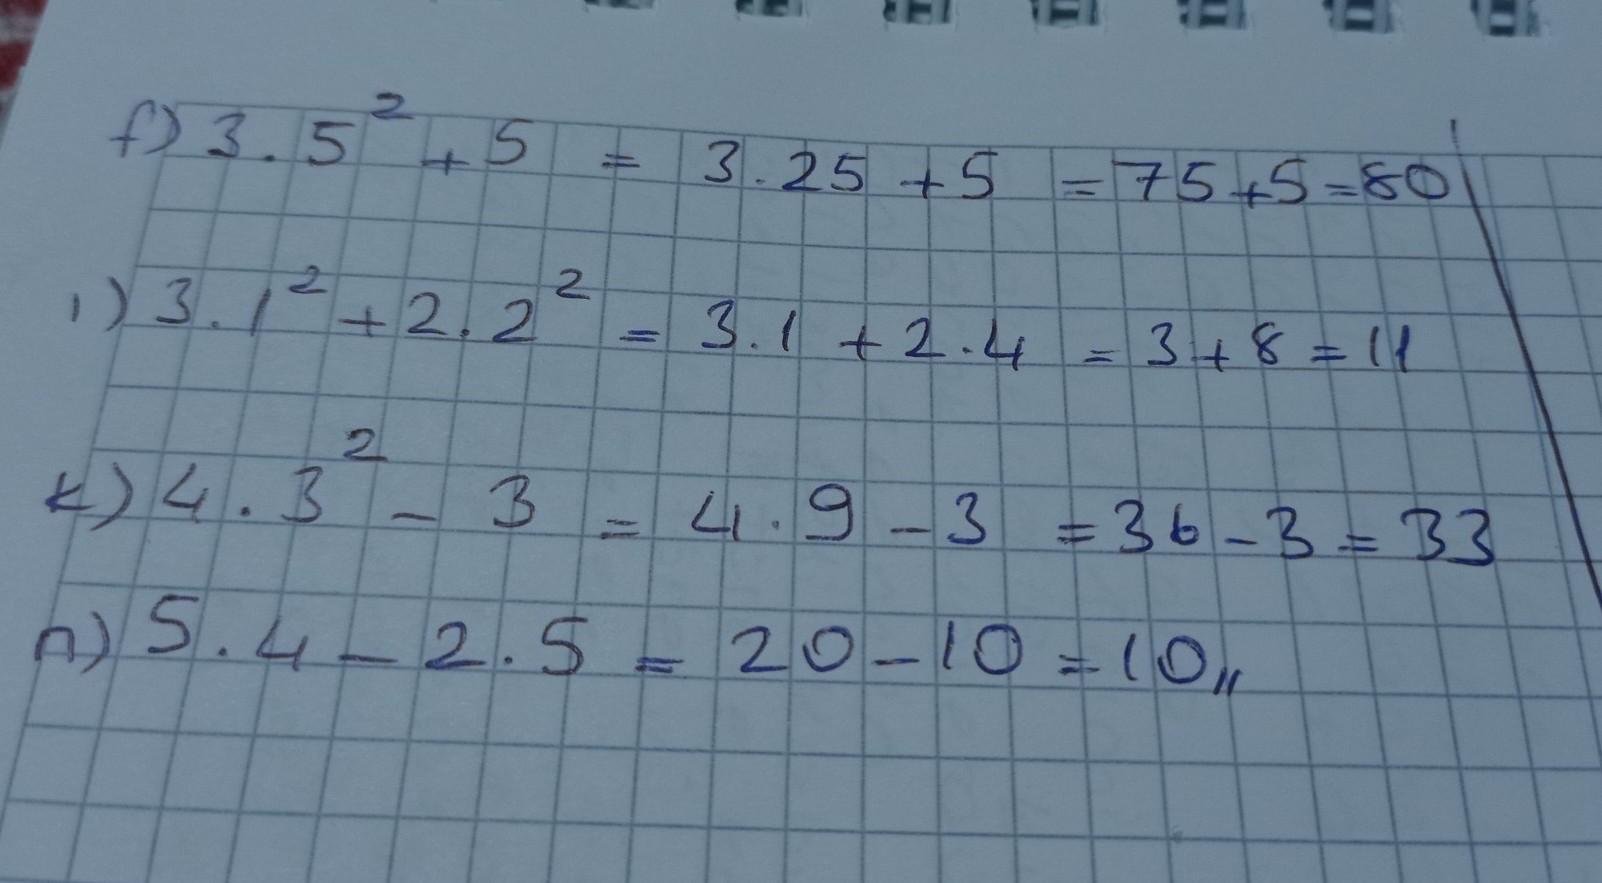 f) 3 . 5² + 5 = 3 . 25 + 5 = 75 + 5 = 80
ı) 3 . 1² + 2 . 2² = 3 . 1 + 2 . 4 = 3 + 8 = 11
k) 4 . 3² - 3 = 4 . 9 - 3 = 36 - 3 = 33
n) 5 . 4 - 2 . 5 = 20 - 10 = 10,,